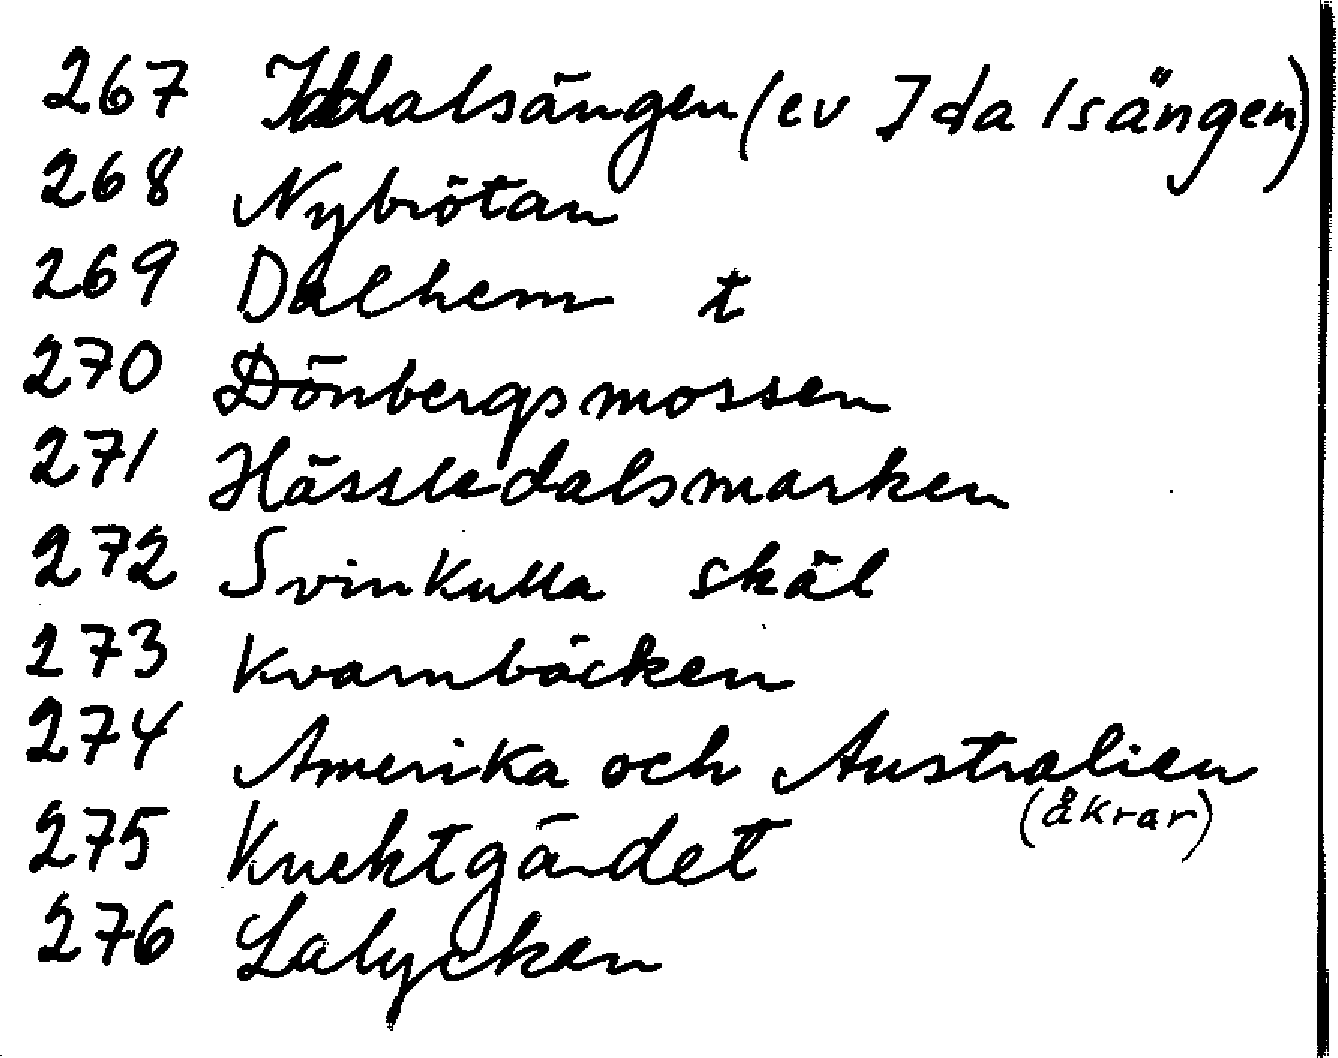 267 Iddalsängen (ev Idalsängen)
268 Nybrötan
269 Dalhem t
270 Dönbergsmossen
271 Hässledalsmarken
272 Svinkulla skäl
273 Kvarnbäcken
274 Amerika och Australien
(åkrar)
275 Knektgärdet
276 Lalyckan